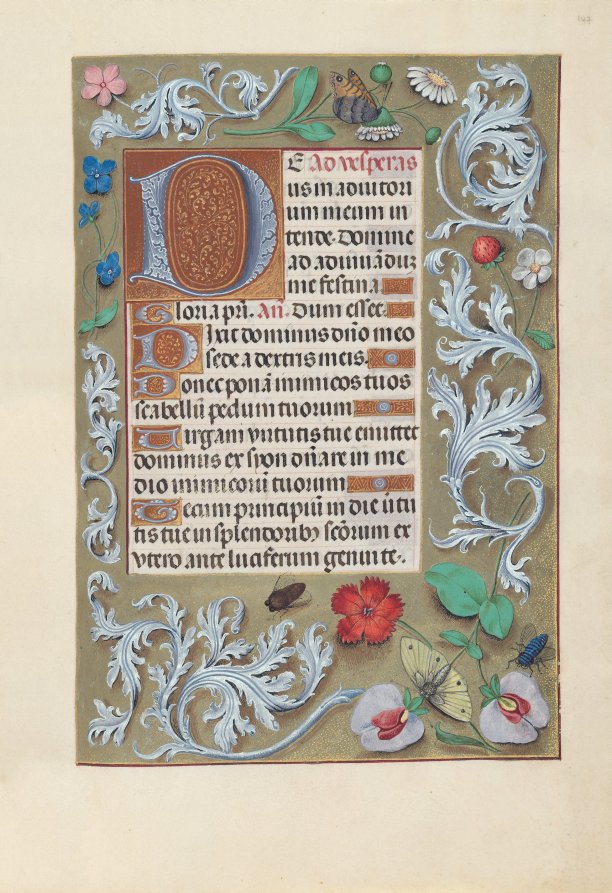 147
DE Ad vesperas
us in adiutori
um meum in
tende. Domine
ad adiuuādū
me festina
Gloria pr̄i. Añ. Dum esset.
Dixit dominus dño meo
sede a dextris meis.
Donec ponā inimicos tuos
scabellū pedum tuorum
Uirgam uirtutis tue emittet
dominus ex syon dñare in me
dio inimicorū tuorum
Tecum principiū in die uirtu
tis tue in splendorib9 sc̄orum ex
vtero ante luciferum genui te.